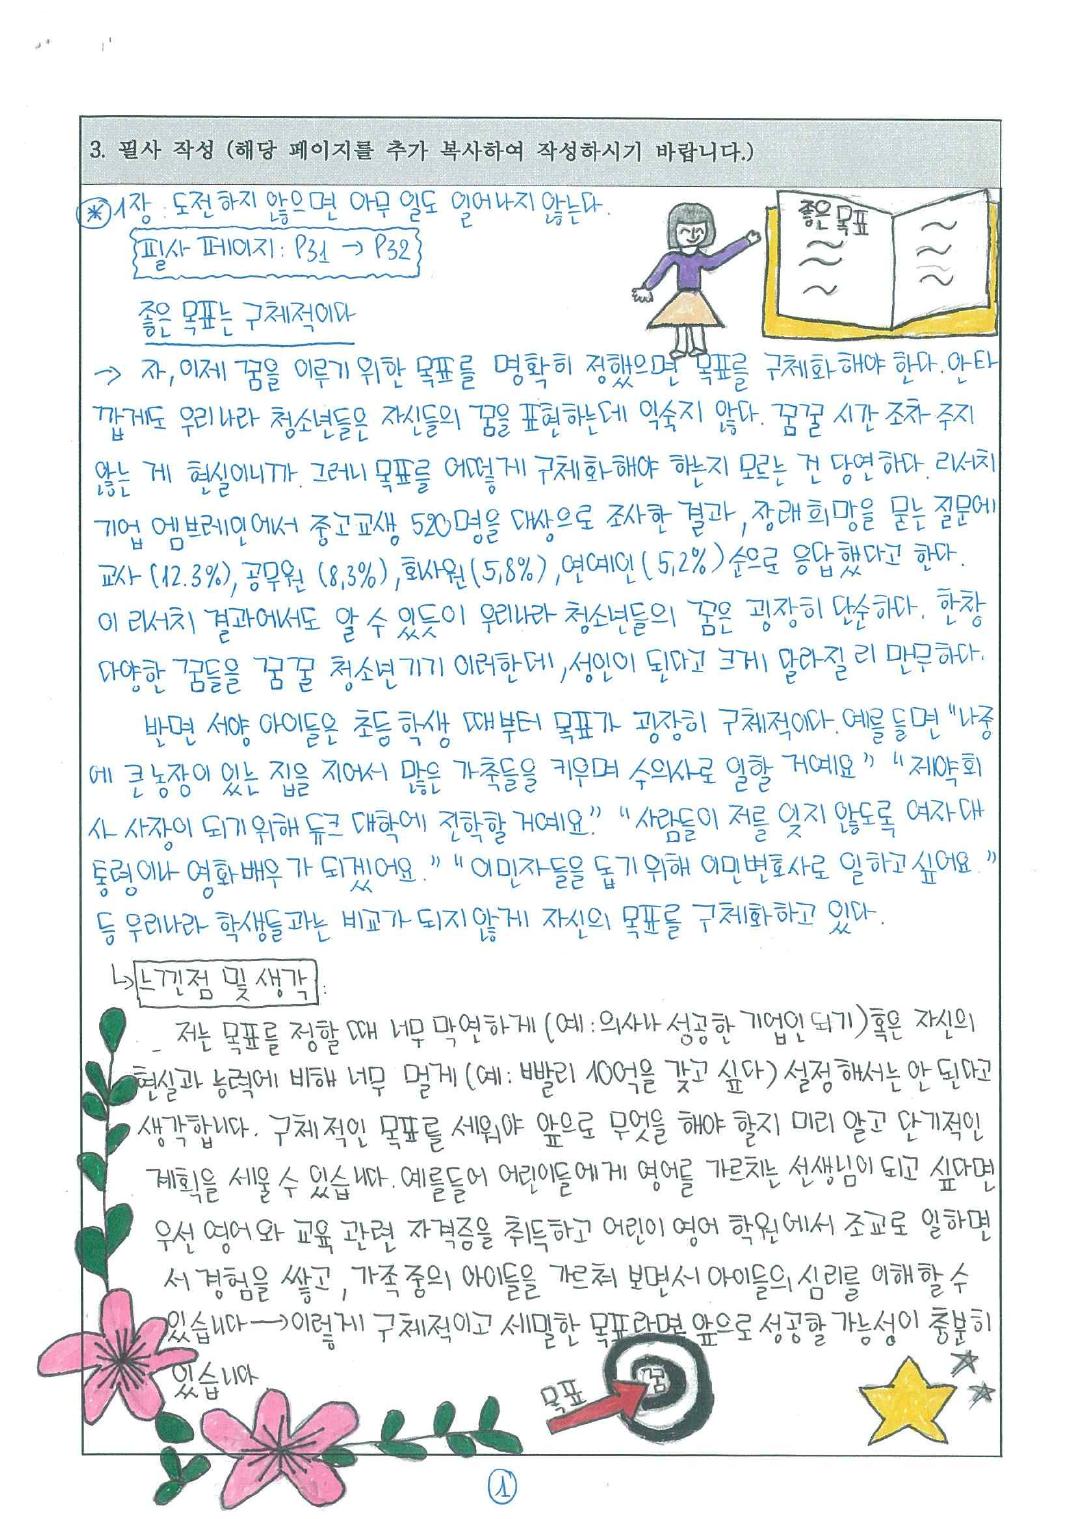 3. 필사 작성 (해당 페이지를 추가 복사하여 작성하시기 바랍니다.)
* 1장 : 도전하지 않으면 아무 일도 일어나지 않는다.
필사 페이지: P31 → P32
좋은 목표
좋은 목표는 구체적이다
→ 자, 이제 꿈을 이루기 위한 목표를 명확히 정했으면 목표를 구체화해야 한다. 안타
깝게도 우리나라 청소년들은 자신들의 꿈을 표현하는데 익숙지 않다. 꿈꿀 시간 조차 주지
않는 게 현실이니까. 그러니 목표를 어떻게 구체화해야 하는지 모르는 건 당연하다. 리서치
기업 엠브레인에서 중고교생 520명을 대상으로 조사한 결과, 장래희망을 묻는 질문에
교사 (12.3%), 공무원 (8,3%), 회사원 (5,8%), 연예인 (5,2%) 순으로 응답했다고 한다.
이 리서치 결과에서도 알 수 있듯이 우리나라 청소년들의 꿈은 굉장히 단순하다. 한창
다양한 꿈들을 꿈꿀 청소년기기 이러한데, 성인이 된다고 크게 달라질 리 만무하다.
반면 서양 아이들은 초등학생 때부터 목표가 굉장히 구체적이다. 예를 들면 "나중
에 큰 농장이 있는 집을 지어서 많은 가축들을 키우며 수의사로 일할 거예요" "제약회
사 사장이 되기 위해 듀크 대학에 진학할 거예요." "사람들이 저를 잊지 않도록 여자 대
통령이나 영화배우가 되겠어요." "이민자들을 돕기 위해 이민변호사로 일하고 싶어요."
등 우리나라 학생들과는 비교가 되지 않게 자신의 목표를 구체화하고 있다.
↳ 느낀점 및 생각 :
저는 목표를 정할 때 너무 막연하게 (예 : 의사나 성공한 기업인 되기) 혹은 자신의
현실과 능력에 비해 너무 멀게 (예 : 빨리 100억을 갖고 싶다) 설정해서는 안 된다고
생각합니다. 구체적인 목표를 세워야 앞으로 무엇을 해야 할지 미리 알고 단기적인
계획을 세울 수 있습니다. 예를들어 어린이들에게 영어를 가르치는 선생님이 되고 싶다면
우선 영어와 교육 관련 자격증을 취득하고 어린이 영어 학원에서 조교로 일하면
서 경험을 쌓고, 가족 중의 아이들을 가르쳐 보면서 아이들의 심리를 이해할 수
있습니다 → 이렇게 구체적이고 세밀한 목표라면 앞으로 성공할 가능성이 충분히
있습니다
목표
꿈
1